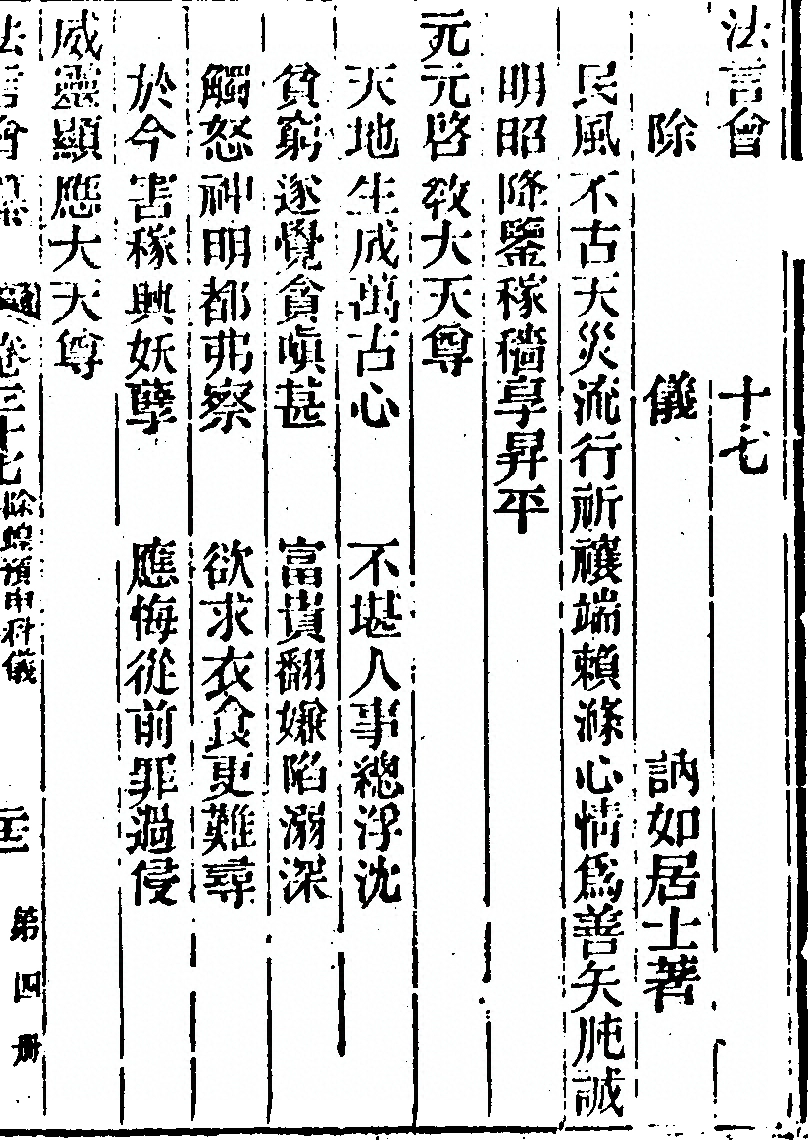 法言會 十七
除 儀 訥如居士著
民風不古天災流行祈禳端賴滌心情爲善矢肫誠
明昭降鑒稼穡享昇平
元元啓教大天尊
天地生成萬古心 不堪人事總浮沈
貧窮遂覺貪嗔甚 富貴翻嫌陷溺深
觸怒神明都弗察 欲求衣食更難尋
於今害稼興妖孽 應悔從前罪過侵
威靈顯應大天尊
法言會 卷三十七 除蝗預申科儀 第四册